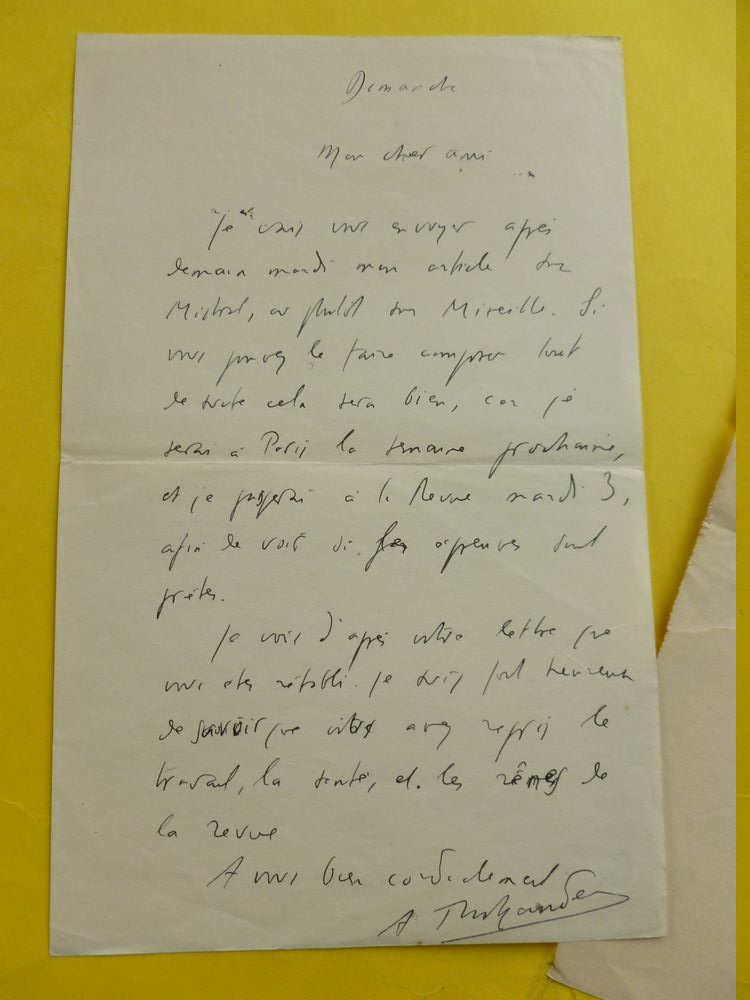 Dimanche
Mon cher ami
Je vais vous envoyer après
demain mardi mon article sur
Mistral, ou plutôt sur Mireille. Si
vous pouvez le faire composer tout
de suite cela sera bien, car je
serai à Paris la semaine prochaine,
et je passerai à la Revue mardi 3,
afin de voir si les épreuves sont
prêtes.
Je vois d'après votre lettre que
vous êtes rétabli. Je suis fort heureux
de savoir que vous avez repris le
travail, la santé, et les rênes de
la revue
A vous bien cordialement
A Thibaudet